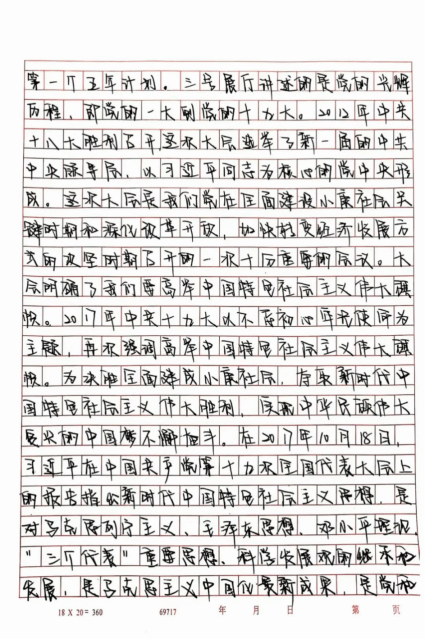 第一个五年计划。三号展厅讲述的是党的光辉
历程，即党的一大到党的十九大。2012年中共
十八大胜利召开，这次大会选举了新一届的中共
中央领导层，以习近平同志为核心的党中央形
成。这次大会是我们党在全面建设小康社会关
键时期和深化改革开放，加快转变经济发展方
式的攻坚时期召开的一次十分重要的会议。大
会明确了我们要高举中国特色社会主义伟大旗
帜。2017年中共十九大以不忘初心牢记使命为
主题，再次强调高举中国特色社会主义伟大旗
帜。为决胜全面建成小康社会，夺取新时代中
国特色社会主义伟大胜利，实现中华民族伟大
复兴的中国梦不懈奋斗。在2017年10月18日，
习近平在中国共产党第十九次全国代表大会上
的报告指出新时代中国特色社会主义思想，是
对马克思列宁主义、毛泽东思想、邓小平理论、
“三个代表”重要思想、科学发展观的继承和
发展，是马克思主义中国化最新成果，是党和
18 X 20 = 360 69717 年 月 日 第 页